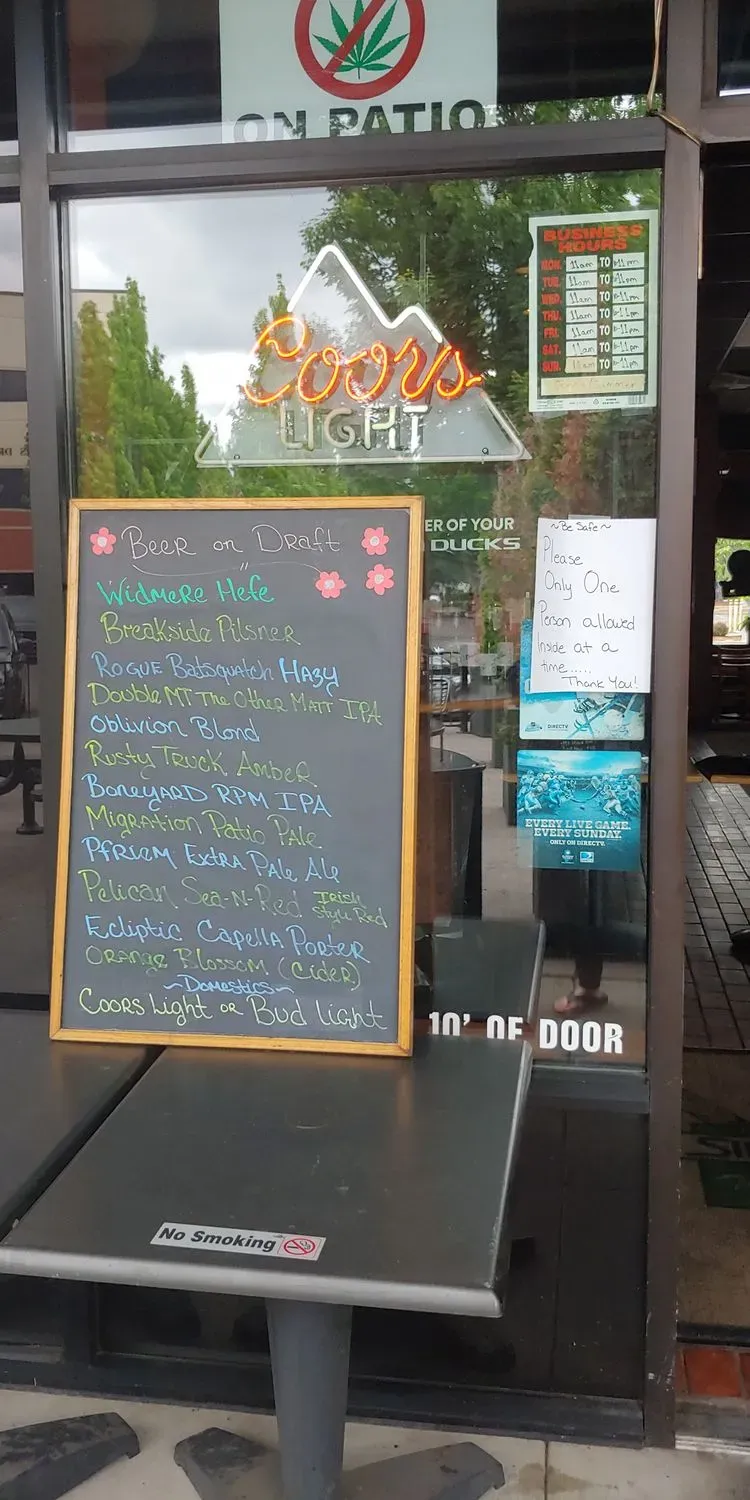 ON PATIO
Coors
LIGHT
BUSINESS
HOURS
MON. 11am TO 11pm
TUE. 11am TO 11pm
WED. 11am TO 11pm
THU. 11am TO 11pm
FRI. 11am TO 11pm
SAT. 11am TO 11pm
SUN. 11am TO 11pm
ER OF YOUR
DUCKS
~Be Safe~
Please
Only One
Person allowed
inside at a
time.....
Thank You!
DIRECTV
EVERY LIVE GAME.
EVERY SUNDAY.
ONLY ON DIRECTV.
Beer on Draft
Widmere Hefe
Breakside Pilsner
Rogue Batsquatch Hazy
Double MT The Other Matt IPA
Oblivion Blond
Rusty Truck Amber
Boneyard RPM IPA
Migration Patio Pale
Pfriem Extra Pale Ale
Pelican Sea-N-Red Irish
Style Red
Ecliptic Capella Porter
Orange Blossom (Cider)
~Domestics~
Coors Light or Bud Light
10' OF DOOR
No Smoking